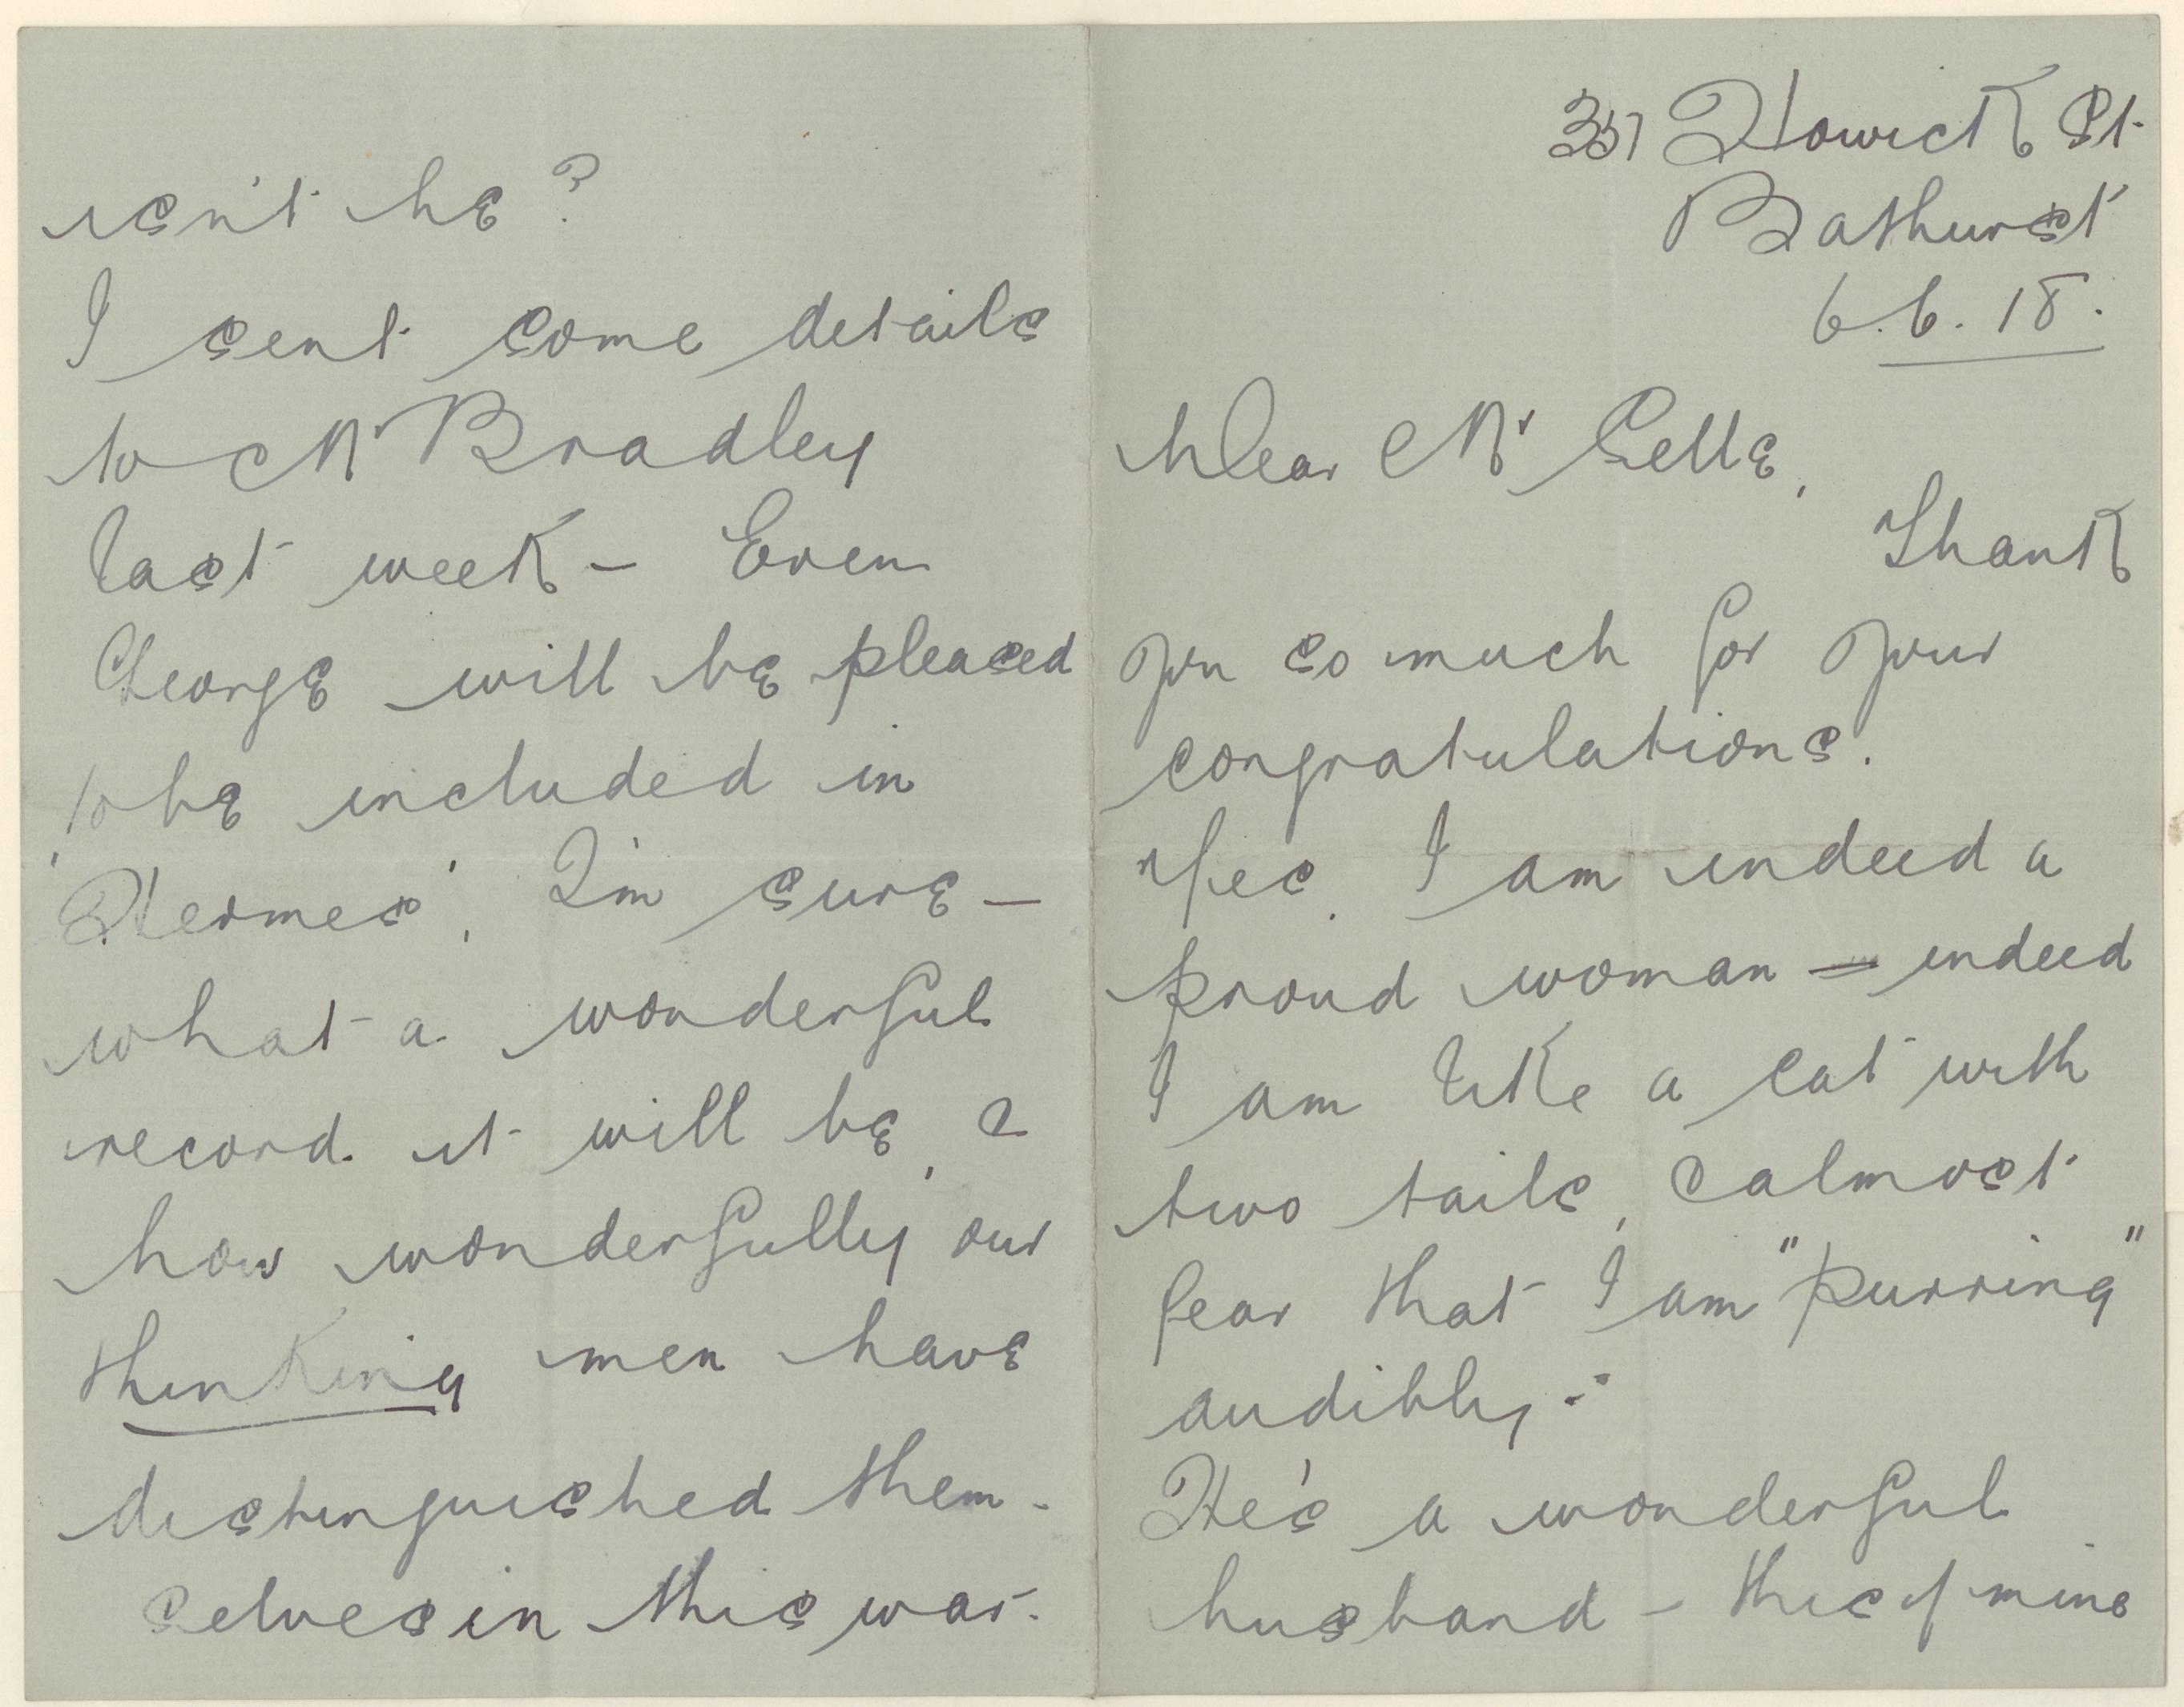 357 Howick St.
Bathurst
6.6.18.
Dear Mr Selle,
Thank
you so much for your
congratulations.
Yes, I am indeed a
proud woman – indeed
I am like a cat with
two tails, & almost
fear that I am "purring"
audibly.
He's a wonderful
husband – this of mine
isn't he?
I sent some details
to Mr Bradley
last week – Even
George will be pleased
to be included in
'Hermes', I'm sure –
what a wonderful
record it will be, &
how wonderfully our
thinking men have
distinguished them-
selves in this war.